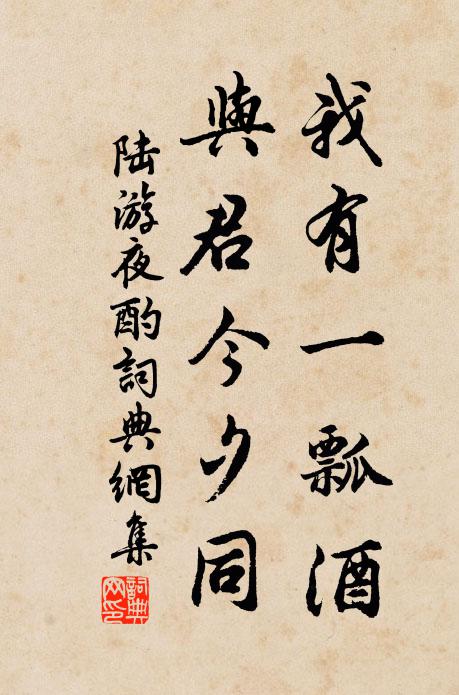 我有一瓢酒
與君今夕同
陸游夜酌詞典網集
詞典